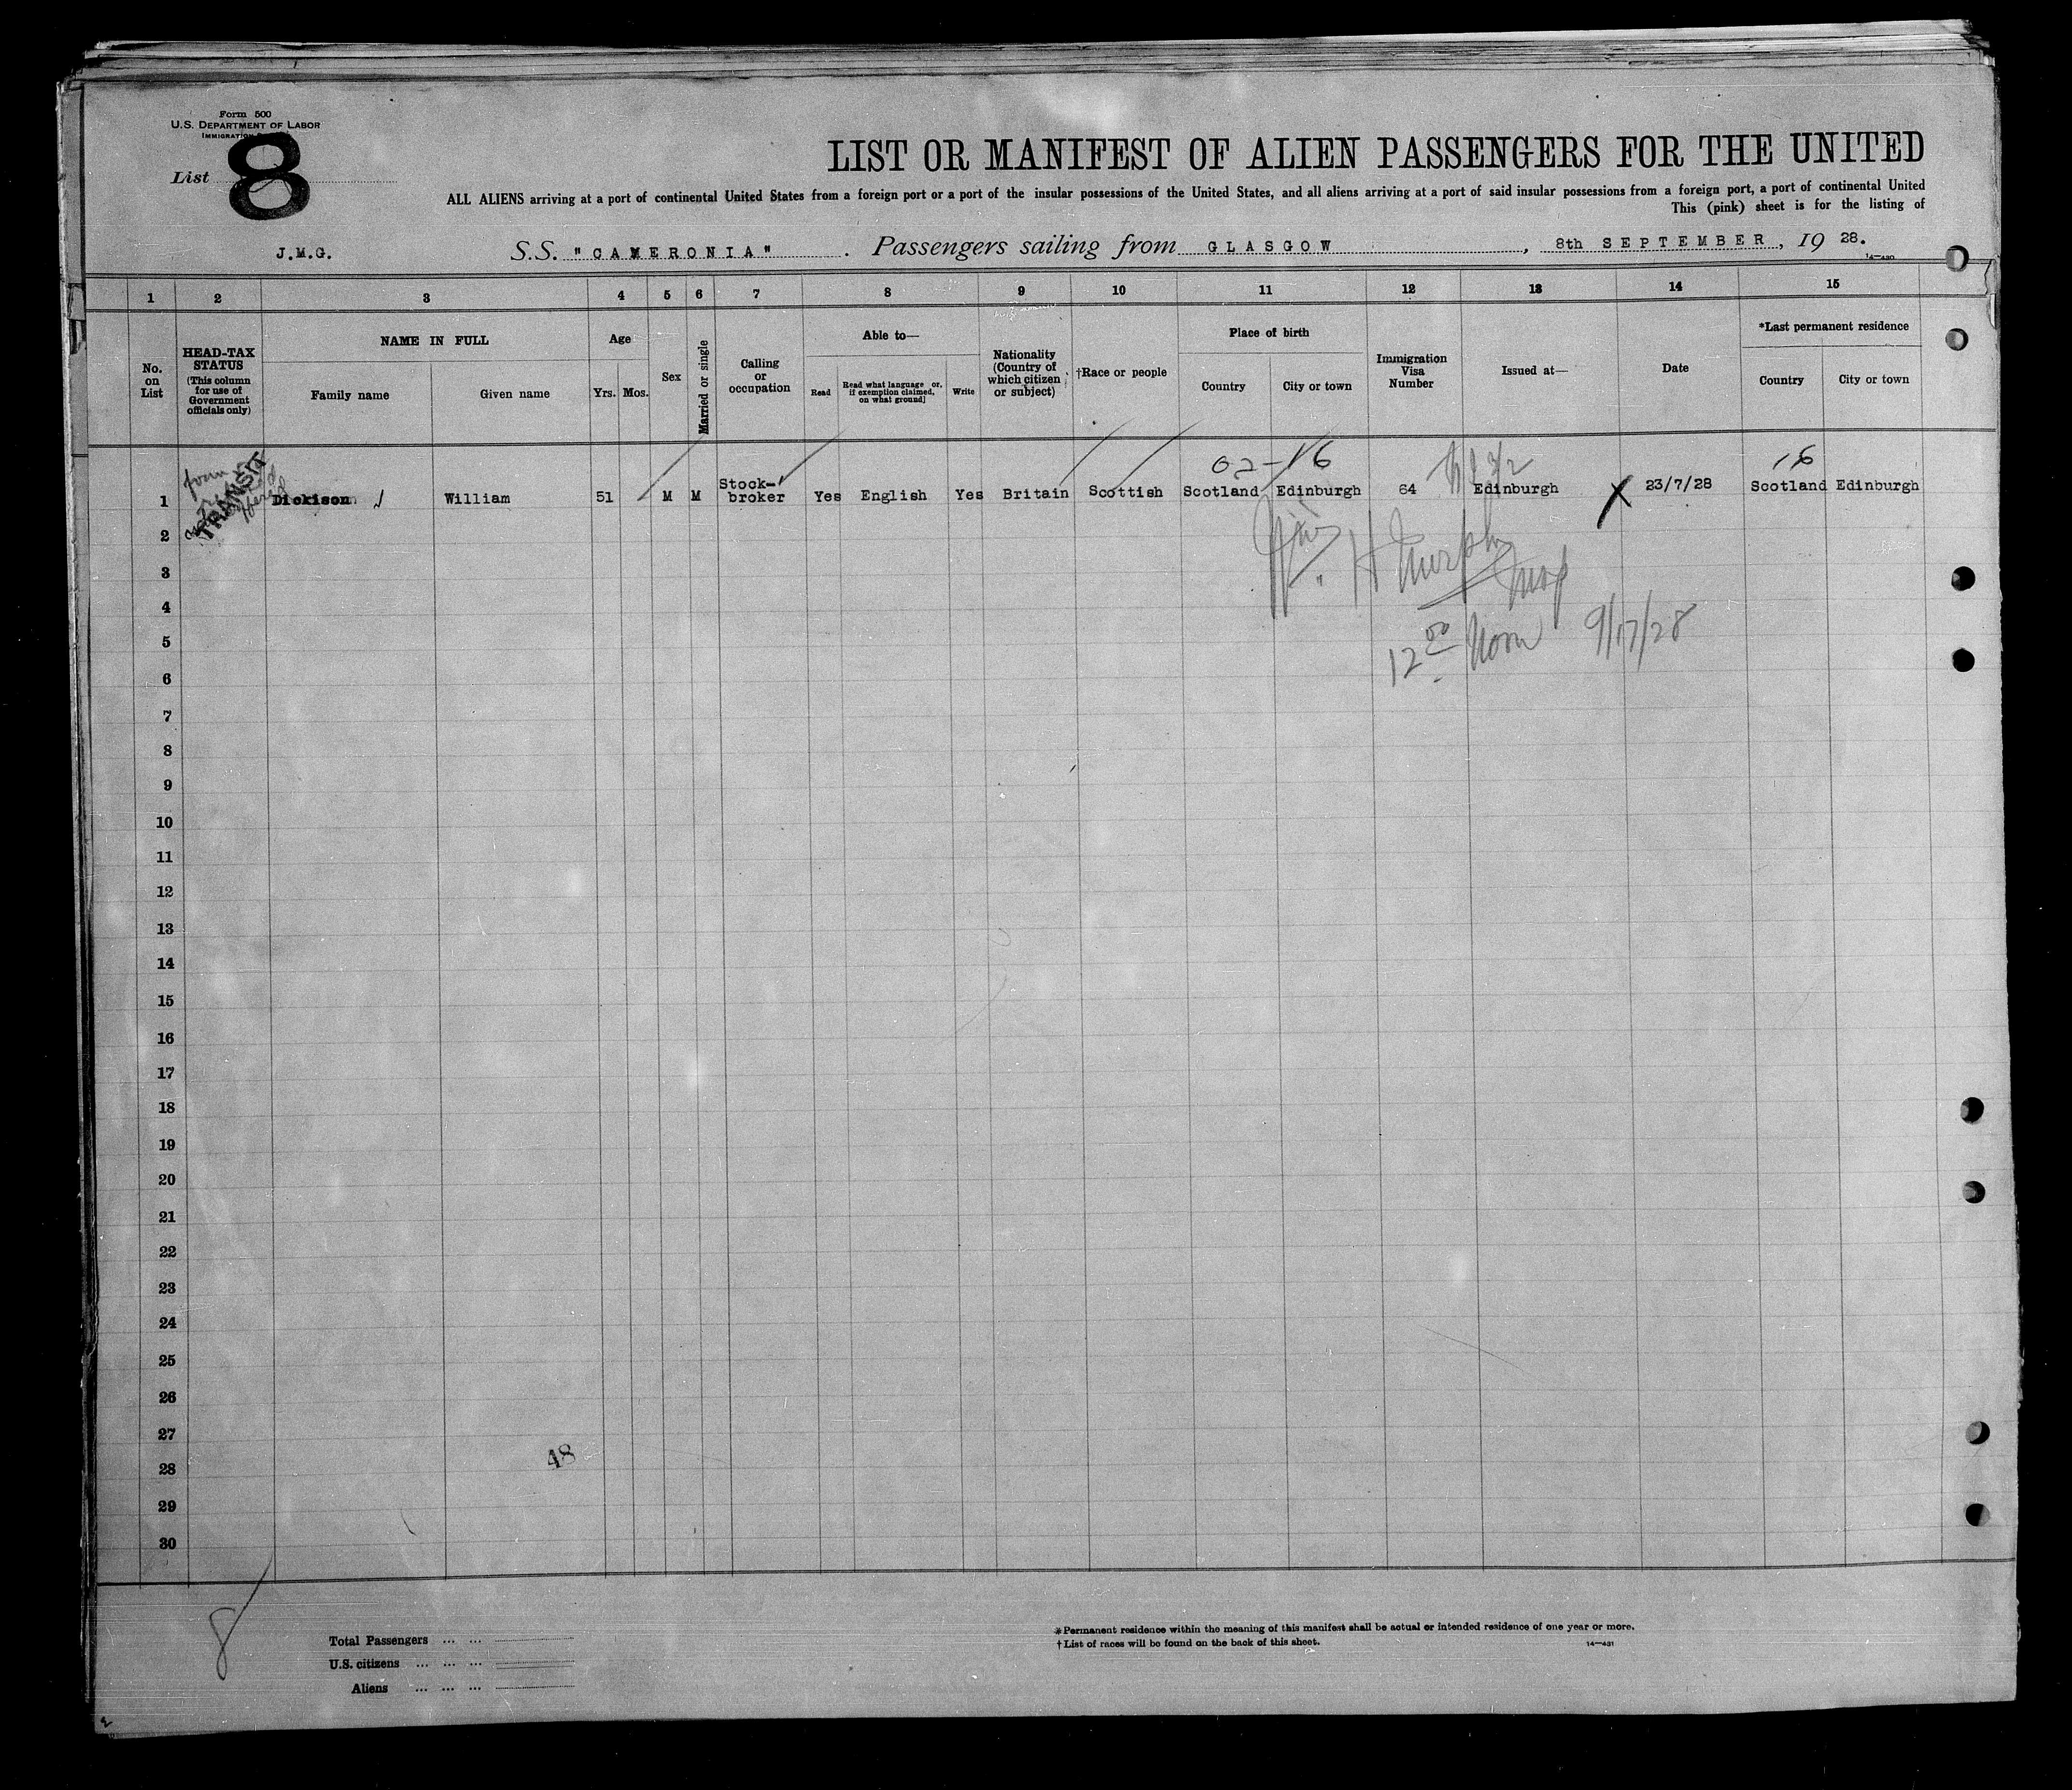 Form 500
U.S. DEPARTMENT OF LABOR
IMMIGRATION
List 8
LIST OR MANIFEST OF ALIEN PASSENGERS FOR THE UNITED
ALL ALIENS arriving at a port of continental United States from a foreign port or a port of the insular possessions of the United States, and all aliens arriving at a port of said insular possessions from a foreign port, a port of continental United
This (pink) sheet is for the listing of
J.M.G. S.S. "CAMERONIA". Passengers sailing from GLASGOW, 8th SEPTEMBER, 19 28.
14—430
1 2 3 4 5 6 7 8 9 10 11 12 13 14 15
No. on List
HEAD-TAX STATUS (This column for use of Government officials only)
NAME IN FULL
Family name Given name
Age
Yrs. Mos.
Sex
Married or single
Calling or occupation
Able to—
Read Read what language or, if exemption claimed, on what ground] Write
Nationality (Country of which citizen or subject)
†Race or people
Place of birth
Country City or town
Immigration Visa Number
Issued at—
Date
*Last permanent residence
Country City or town
02-16 16
TRANSIT
1 Dickison William 51 M M Stock-broker Yes English Yes Britain Scottish Scotland Edinburgh 64 Edinburgh X 23/7/28 Scotland Edinburgh
H Murphy
12 00 Noon 9/17/28
2
3
4
5
6
7
8
9
10
11
12
13
14
15
16
17
18
19
20
21
22
23
24
25
26
27
48
28
29
30
8
Total Passengers ... ...
U.S. citizens ... ... ...
Aliens ... ... ...
*Permanent residence within the meaning of this manifest shall be actual or intended residence of one year or more.
†List of races will be found on the back of this sheet.
14—431